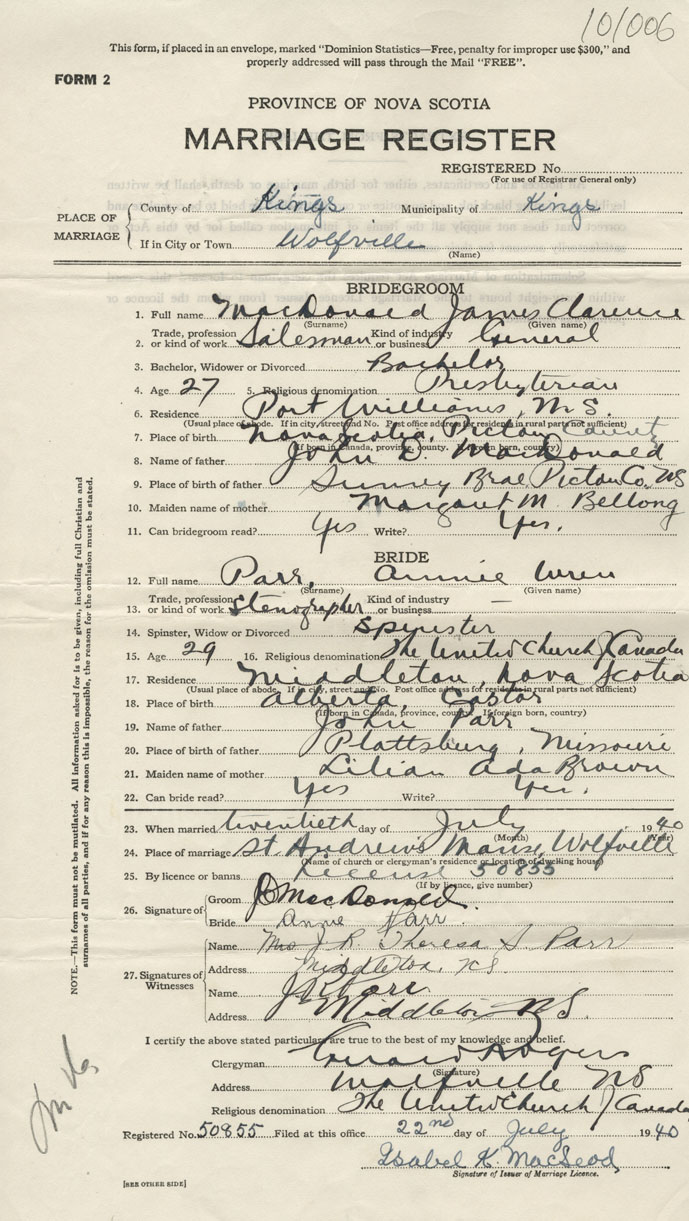 101006
This form, if placed in an envelope, marked "Dominion Statistics—Free, penalty for improper use $300," and
properly addressed will pass through the Mail "FREE".
FORM 2
PROVINCE OF NOVA SCOTIA
MARRIAGE REGISTER
REGISTERED No.
(For use of Registrar General only)
PLACE OF MARRIAGE
County of Kings Municipality of Kings
If in City or Town Wolfville
(Name)
BRIDEGROOM
1. Full name MacDonald James Clarence
(Surname) (Given name)
2. Trade, profession or kind of work Salesman Kind of industry or business General
3. Bachelor, Widower or Divorced Bachelor
4. Age 27 5. Religious denomination Presbyterian
6. Residence Port Williams, N.S.
(Usual place of abode. If in city, street and No. Post office address for residents in rural parts not sufficient)
7. Place of birth Nova Scotia, Pictou County
(If born in Canada, province, county. If foreign born, country)
8. Name of father John D. MacDonald
9. Place of birth of father Sunny Brae Pictou Co. NS
10. Maiden name of mother Margaret M.
11. Can bridegroom read? Yes Write? Yes.
BRIDE
12. Full name Parr, Annie Wren
(Surname) (Given name)
13. Trade, profession or kind of work Stenographer Kind of industry or business —
14. Spinster, Widow or Divorced Spinster
15. Age 29 16. Religious denomination The United Church of Canada
17. Residence Middleton, Nova Scotia
(Usual place of abode. If in city, street and No. Post office address for residents in rural parts not sufficient)
18. Place of birth Alberta, Castor
(If born in Canada, province, county. If foreign born, country)
19. Name of father John Parr
20. Place of birth of father Plattsburg, Missouri
21. Maiden name of mother Lilian Ada Brown
22. Can bride read? Yes Write? Yes.
23. When married twentieth day of July 1940
(Month) (Year)
24. Place of marriage St. Andrew's Manse, Wolfville
(Name of church or clergyman's residence or location of dwelling house)
25. By licence or banns License 50855
(If by licence, give number)
26. Signature of
Groom J MacDonald.
Bride Annie Parr
27. Signatures of Witnesses
Name Mrs J. R. Theresa S. Parr
Address Middleton, NS
Name J R Parr.
Address Middleton N.S.
I certify the above stated particulars are true to the best of my knowledge and belief.
Clergyman Gerald Rogers
(Signature)
Address Wolfville NS
Religious denomination The United Church of Canada
Registered No. 50855 Filed at this office 22nd day of July 1940
Isabel K. MacLeod,
Signature of Issuer of Marriage Licence.
[SEE OTHER SIDE]
NOTE.—This form must not be mutilated. All information asked for is to be given, including full Christian and
surnames of all parties, and if for any reason this is impossible, the reason for the omission must be stated.